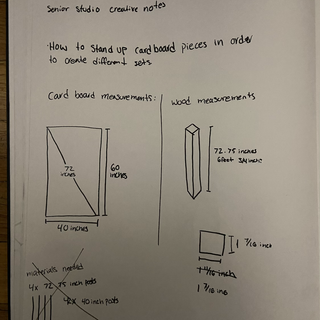 Senior Studio creative notes
· How to Stand up cardboard pieces in order
to create different sets
Card board measurements:
Wood measurements
72
inches
60
inches
40 inches
72.75 inches
6 foot 3/4 inch
1 7/16 inch
1 7/16 inch
1 7/16 ins
materials needed
4x 72.75 inch posts
40 inch posts